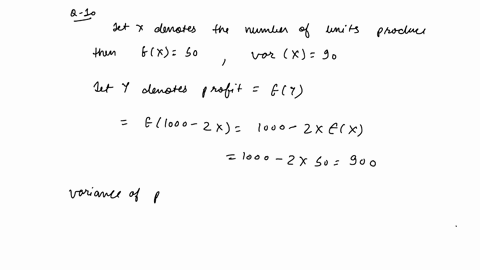 Q-10
Let X denotes the number of units produce
then E(X) = 50 , var (X) = 90
Let Y denotes profit = E(Y)
= E(1000 - 2X) = 1000 - 2 x E(X)
= 1000 - 2 x 50 = 900
variance of p